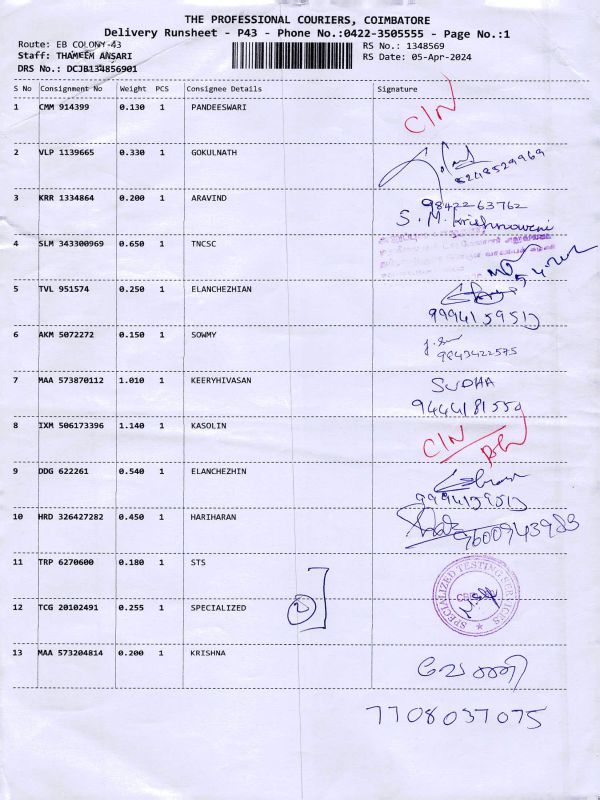 THE PROFESSIONAL COURIERS, COIMBATORE
Delivery Runsheet - P43 - Phone No.:0422-3505555 - Page No.:1
Route: EB COLONY-43
RS No.: 1348569
Staff: THAMEEM ANSARI
RS Date: 05-Apr-2024
DRS No.: DCJB134856901
S No Consignment No Weight PCS Consignee Details Signature
1 CMM 914399 0.130 1 PANDEESWARI C/N
2 VLP 1139665 0.330 1 GOKULNATH
3 KRR 1334864 0.200 1 ARAVIND 9842263762
S. M. Krishnaveni
4 SLM 343300969 0.650 1 TNCSC
5 TVL 951574 0.250 1 ELANCHEZHIAN
9994139513
6 AKM 5072272 0.150 1 SOWMY
9843422575
7 MAA 573870112 1.010 1 KEERYHIVASAN SUDHA
9444181550
8 IXM 506173396 1.140 1 KASOLIN C/N
9 DDG 622261 0.540 1 ELANCHEZHIN
9994139513
10 HRD 326427282 0.450 1 HARIHARAN 9600943983
11 TRP 6270600 0.180 1 STS
SPECIALIZED TESTING SERVICES
12 TCG 20102491 0.255 1 SPECIALIZED 2
13 MAA 573204814 0.200 1 KRISHNA
7708037075